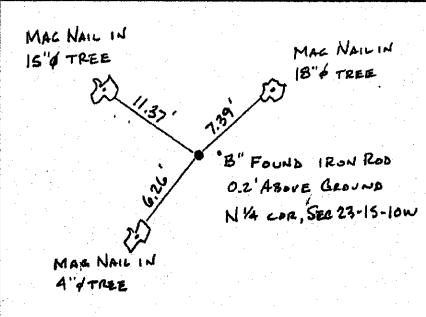 MAG NAIL IN
15"⌀ TREE
MAG NAIL IN
18"⌀ TREE
11.37'
7.39'
6.26'
"B" FOUND IRON ROD
0.2' ABOVE GROUND
N ¼ COR, SEC 23-15-10W
MAG NAIL IN
4"⌀ TREE